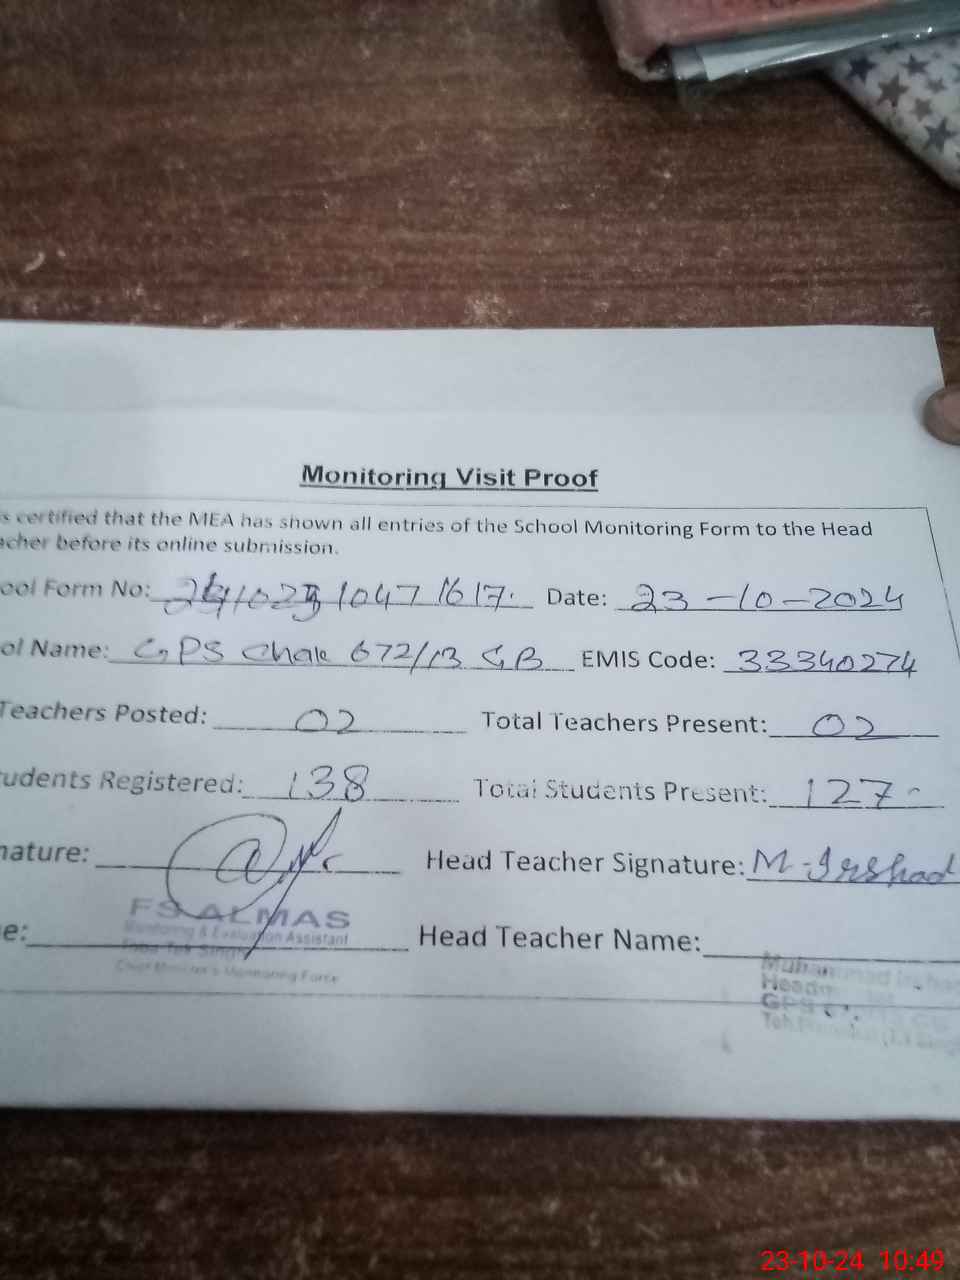 Monitoring Visit Proof
s certified that the MEA has shown all entries of the School Monitoring Form to the Head
acher before its online submission.
ool Form No: Date: 23-10-2024
ol Name: GPS Chak 672/13 GB EMIS Code: 33340274
Teachers Posted: 02 Total Teachers Present: 02
tudents Registered: 138 Total Students Present: 127
nature: Head Teacher Signature: M-Irshad
FS ALMAS
Monitoring & Evaluation Assistant
e: Head Teacher Name:
Toba Tek Singh
Chief Minister's Monitoring Force
Muhammad Irsha
GPS
23-10-24 10:49